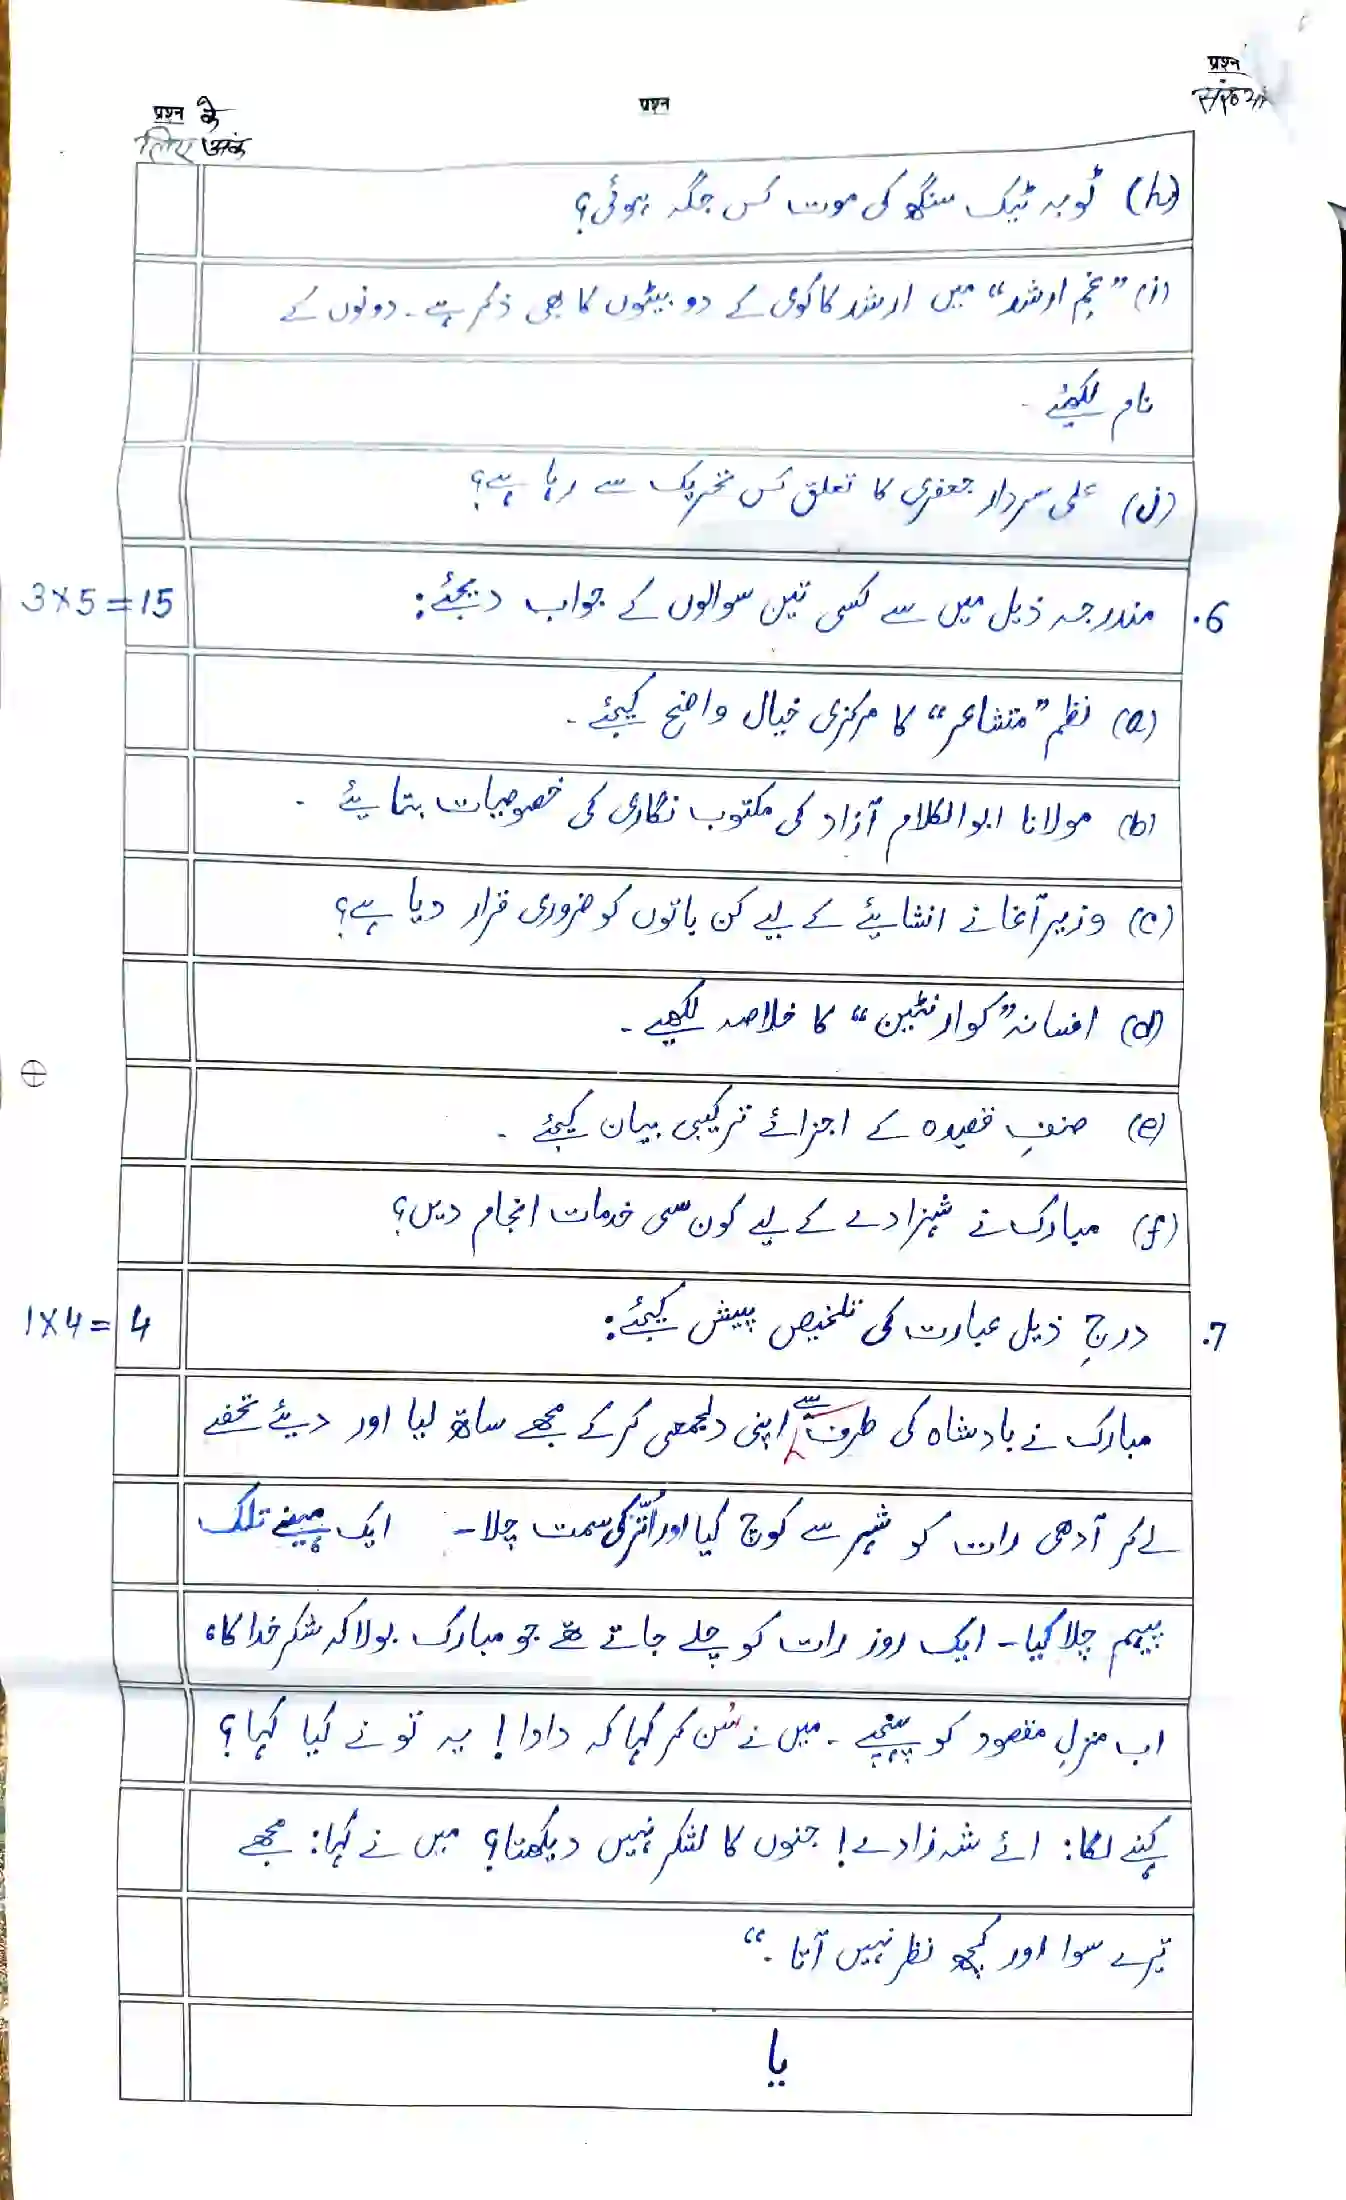 प्रश्न
संख्या
प्रश्न
प्रश्न के
लिए अंक
(h) ٹوبہ ٹیک سنگھ کی موت کس جگہ ہوئی؟
(i) ”غمِ ارشد“ میں ارشد کاکوی کے دو بیٹوں کا بھی ذکر ہے۔ دونوں کے
نام لکھئے۔
(j) علی سردار جعفری کا تعلق کس تحریک سے رہا ہے؟
6. مندرجہ ذیل میں سے کسی تین سوالوں کے جواب دیجئے: 3×5=15
(a) نظم ”متشاعر“ کا مرکزی خیال واضح کیجئے۔
(b) مولانا ابوالکلام آزاد کی مکتوب نگاری کی خصوصیات بتائیے۔
(c) وزیر آغا نے انشائیے کے لیے کن باتوں کو ضروری قرار دیا ہے؟
(d) افسانہ ”کوارنٹین“ کا خلاصہ لکھیے۔
(e) صنفِ قصیدہ کے اجزائے ترکیبی بیان کیجئے۔
(f) مبارک نے شہزادے کے لیے کون سی خدمات انجام دیں؟
7. درجِ ذیل عبارت کی تلخیص پیش کیجئے: 1×4=4
مبارک نے بادشاہ کی طرف سے اپنی دلجمعی کر کے مجھے ساتھ لیا اور دیئے تحفے
لے کر آدھی رات کو شہر سے کوچ کیا اور اُتّر کی سمت چلا۔ ایک مہینے تلک
پیہم چلا گیا۔ ایک روز رات کو چلے جاتے تھے جو مبارک بولا کہ شکر خدا کا،
اب منزلِ مقصود کو پہنچے۔ میں نے سُن کر کہا کہ دادا! یہ تو نے کیا کہا؟
کہنے لگا: ائے شہ زادے! جنوں کا لشکر نہیں دیکھتا؟ میں نے کہا: مجھے
تیرے سوا اور کچھ نظر نہیں آتا۔“
یا